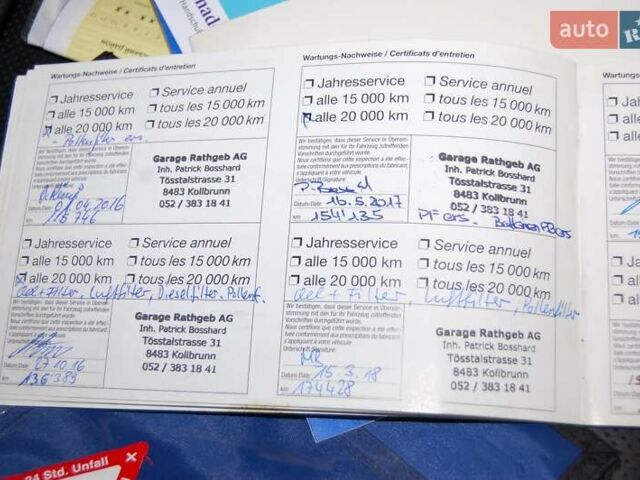 auto
R
nad
Handschuh
Wartungs-Nachweise / Certificats d'entretien
Jahresservice
Service annuel
alle 15 000 km
tous les 15 000 km
alle 20 000 km
tous les 20 000 km
- Pollenfilter ers
Wir bestätigen, dass dieser Service in Überein-
stimmung mit den für Ihr Fahrzeug zutreffenden
Vorschriften durchgeführt wurde.
Nous certifions que cette inspection a été effec-
tuée conformément aux prescriptions du fabricant
s'appliquant à votre véhicule.
Garage Rathgeb AG
Inh. Patrick Bosshard
Tösstalstrasse 31
8483 Kollbrunn
052 / 383 18 41
Datum/Date 01.04.2016
km 115 746
Jahresservice
Service annuel
alle 15 000 km
tous les 15 000 km
alle 20 000 km
tous les 20 000 km
Oel + Filter, Luftfilter, Dieselfilter, Pollenf.
Wir bestätigen, dass dieser Service in Überein-
stimmung mit den für Ihr Fahrzeug zutreffenden
Vorschriften durchgeführt wurde.
Nous certifions que cette inspection a été effec-
tuée conformément aux prescriptions du fabricant
s'appliquant à votre véhicule.
Garage Rathgeb AG
Inh. Patrick Bosshard
Tösstalstrasse 31
8483 Kollbrunn
052 / 383 18 41
Datum/Date 07.10.16
km 136'389
Wartungs-Nachweise / Certificats d'entretien
Jahresservice
Service annuel
alle 15 000 km
tous les 15 000 km
alle 20 000 km
tous les 20 000 km
Wir bestätigen, dass dieser Service in Überein-
stimmung mit den für Ihr Fahrzeug zutreffenden
Vorschriften durchgeführt wurde.
Nous certifions que cette inspection a été effec-
tuée conformément aux prescriptions du fabricant
s'appliquant à votre véhicule.
Unterschrift/Signature:
Garage Rathgeb AG
Inh. Patrick Bosshard
Tösstalstrasse 31
8483 Kollbrunn
052 / 383 18 41
Datum/Date 16.5.2017
km 154'135
PF ers.
Jahresservice
Service annuel
alle 15 000 km
tous les 15 000 km
alle 20 000 km
tous les 20 000 km
Oel + Filter, Luftfilter, Pollenfilter
Wir bestätigen, dass dieser Service in Überein-
stimmung mit den für Ihr Fahrzeug zutreffenden
Vorschriften durchgeführt wurde.
Nous certifions que cette inspection a été effec-
tuée conformément aux prescriptions du fabricant
s'appliquant à votre véhicule.
Unterschrift/Signature:
Garage Rathgeb AG
Inh. Patrick Bosshard
Tösstalstrasse 31
8483 Kollbrunn
052 / 383 18 41
Datum/Date 15.3.18
km 174428
Wartung
24 Std. Unfall